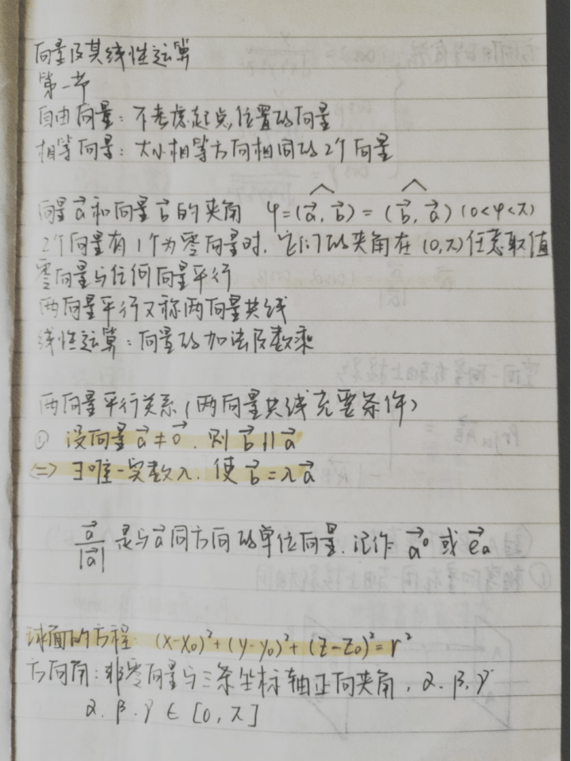 向量及其线性运算
第一节
自由向量：不考虑起点位置的向量
相等向量：大小相等方向相同的2个向量
向量a⃗和向量b⃗的夹角 φ=(a⃗,b⃗)=(b⃗,a⃗) (0<φ<π)
2个向量有1个为零向量时，它们的夹角在(0,π)任意取值
零向量与任何向量平行
两向量平行又称两向量共线
线性运算：向量的加法及数乘
两向量平行关系(两向量共线充要条件)
① 设向量a⃗≠0⃗，则b⃗∥a⃗
⇔ ∃唯一实数λ，使b⃗=λa⃗
a⃗/|a⃗| 是与a⃗同方向的单位向量，记作a⃗°或e⃗a
球面的方程：(x-x₀)²+(y-y₀)²+(z-z₀)²=r²
方向角：非零向量与三条坐标轴正向夹角，α.β.γ
α.β.γ∈[0,π]